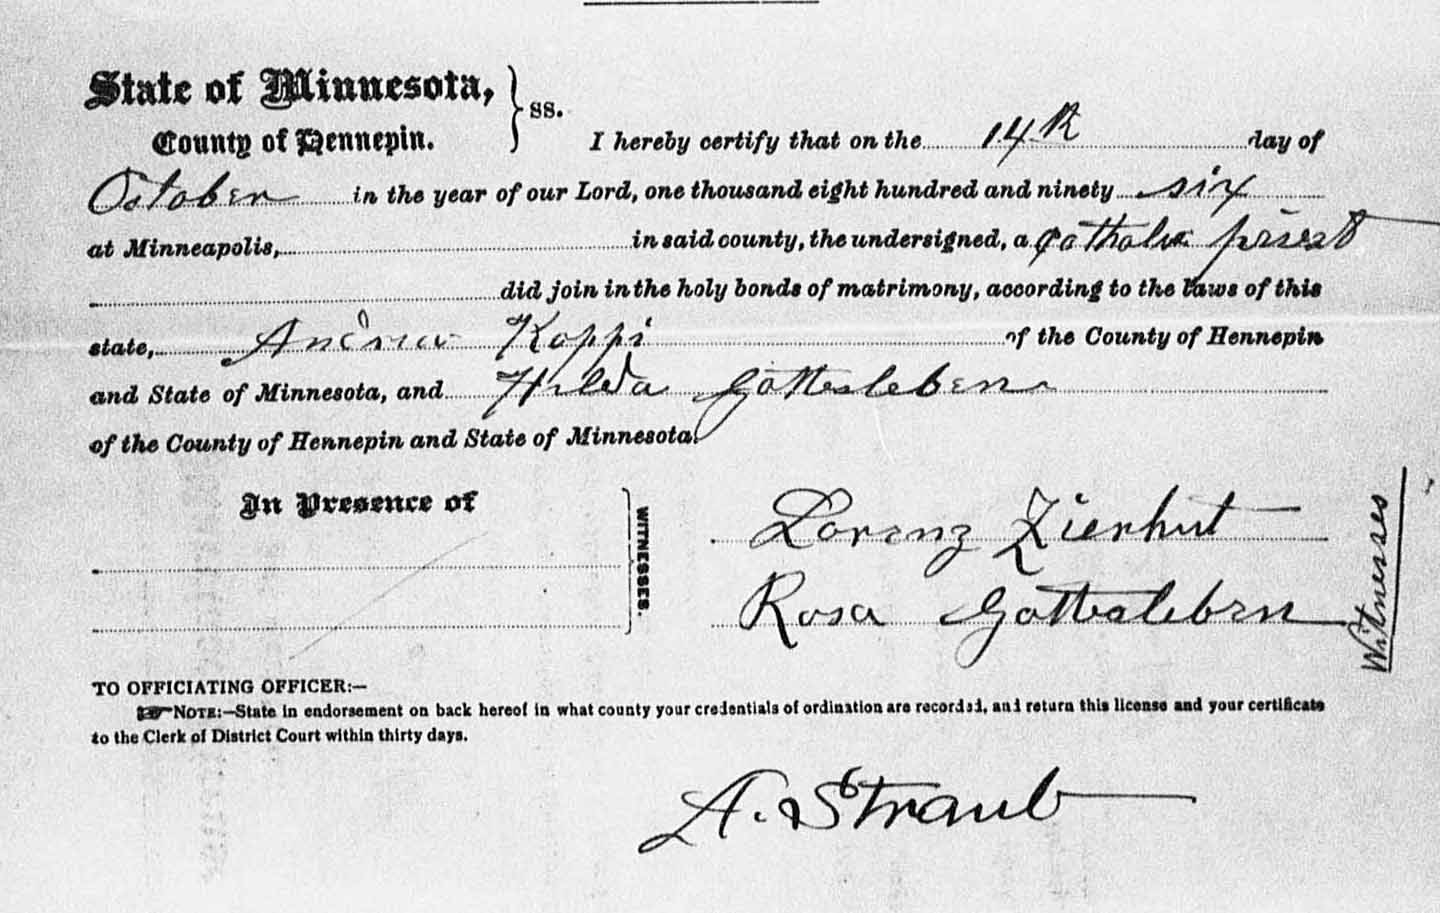 State of Minnesota,
County of Hennepin.
ss.
I hereby certify that on the 14th day of
October in the year of our Lord, one thousand eight hundred and ninety six
at Minneapolis, in said county, the undersigned, a Catholic priest
did join in the holy bonds of matrimony, according to the laws of this
state, Andrew Koppi of the County of Hennepin
and State of Minnesota, and Hilda Gottesleben
of the County of Hennepin and State of Minnesota.
In Presence of
WITNESSES.
Lorenz Zierhut
Rosa Gottesleben
Witnesses
TO OFFICIATING OFFICER:—
☞NOTE:—State in endorsement on back hereof in what county your credentials of ordination are recorded, and return this license and your certificate
to the Clerk of District Court within thirty days.
A. Straub